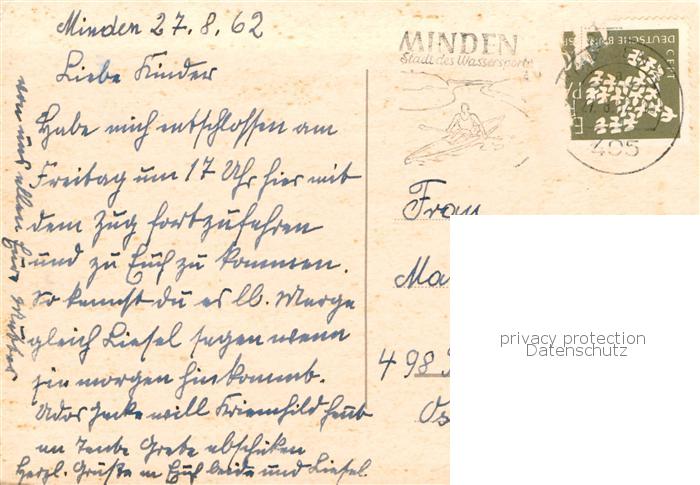 Minden 27.8.62
Liebe Kinder
Habe mich entschlossen am
Freitag um 17 Uhr hier mit
dem Zug fortzufahren
und zu Euch zu kommen.
So kannst du es lb. Marga
gleich Liesel sagen wenn
sie morgen hinkommt.
Udos Jacke will Kriemhild heut
an Tante Grete abschicken
Herzl. Grüße an Euch beide und Liesel.
von uns allen Eure Mutter
MINDEN
Stadt des Wassersports
495
DEUTSCHE BUN
CEPT
Frau
Ma
498
Os
privacy protection
Datenschutz